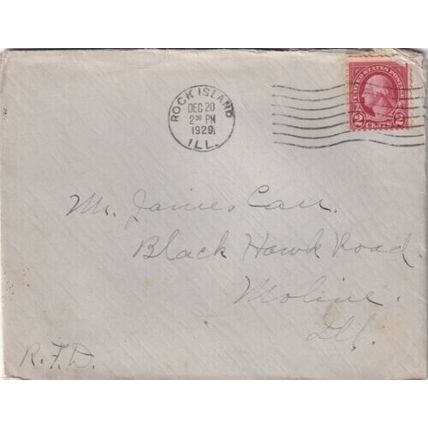 ROCK ISLAND
DEC 20
2 30 PM
1929
ILL.
UNITED STATES POSTAGE
2 CENTS 2
Mr. James Carr.
Black Hawk Road.
Moline.
Ill.
R.F.D.